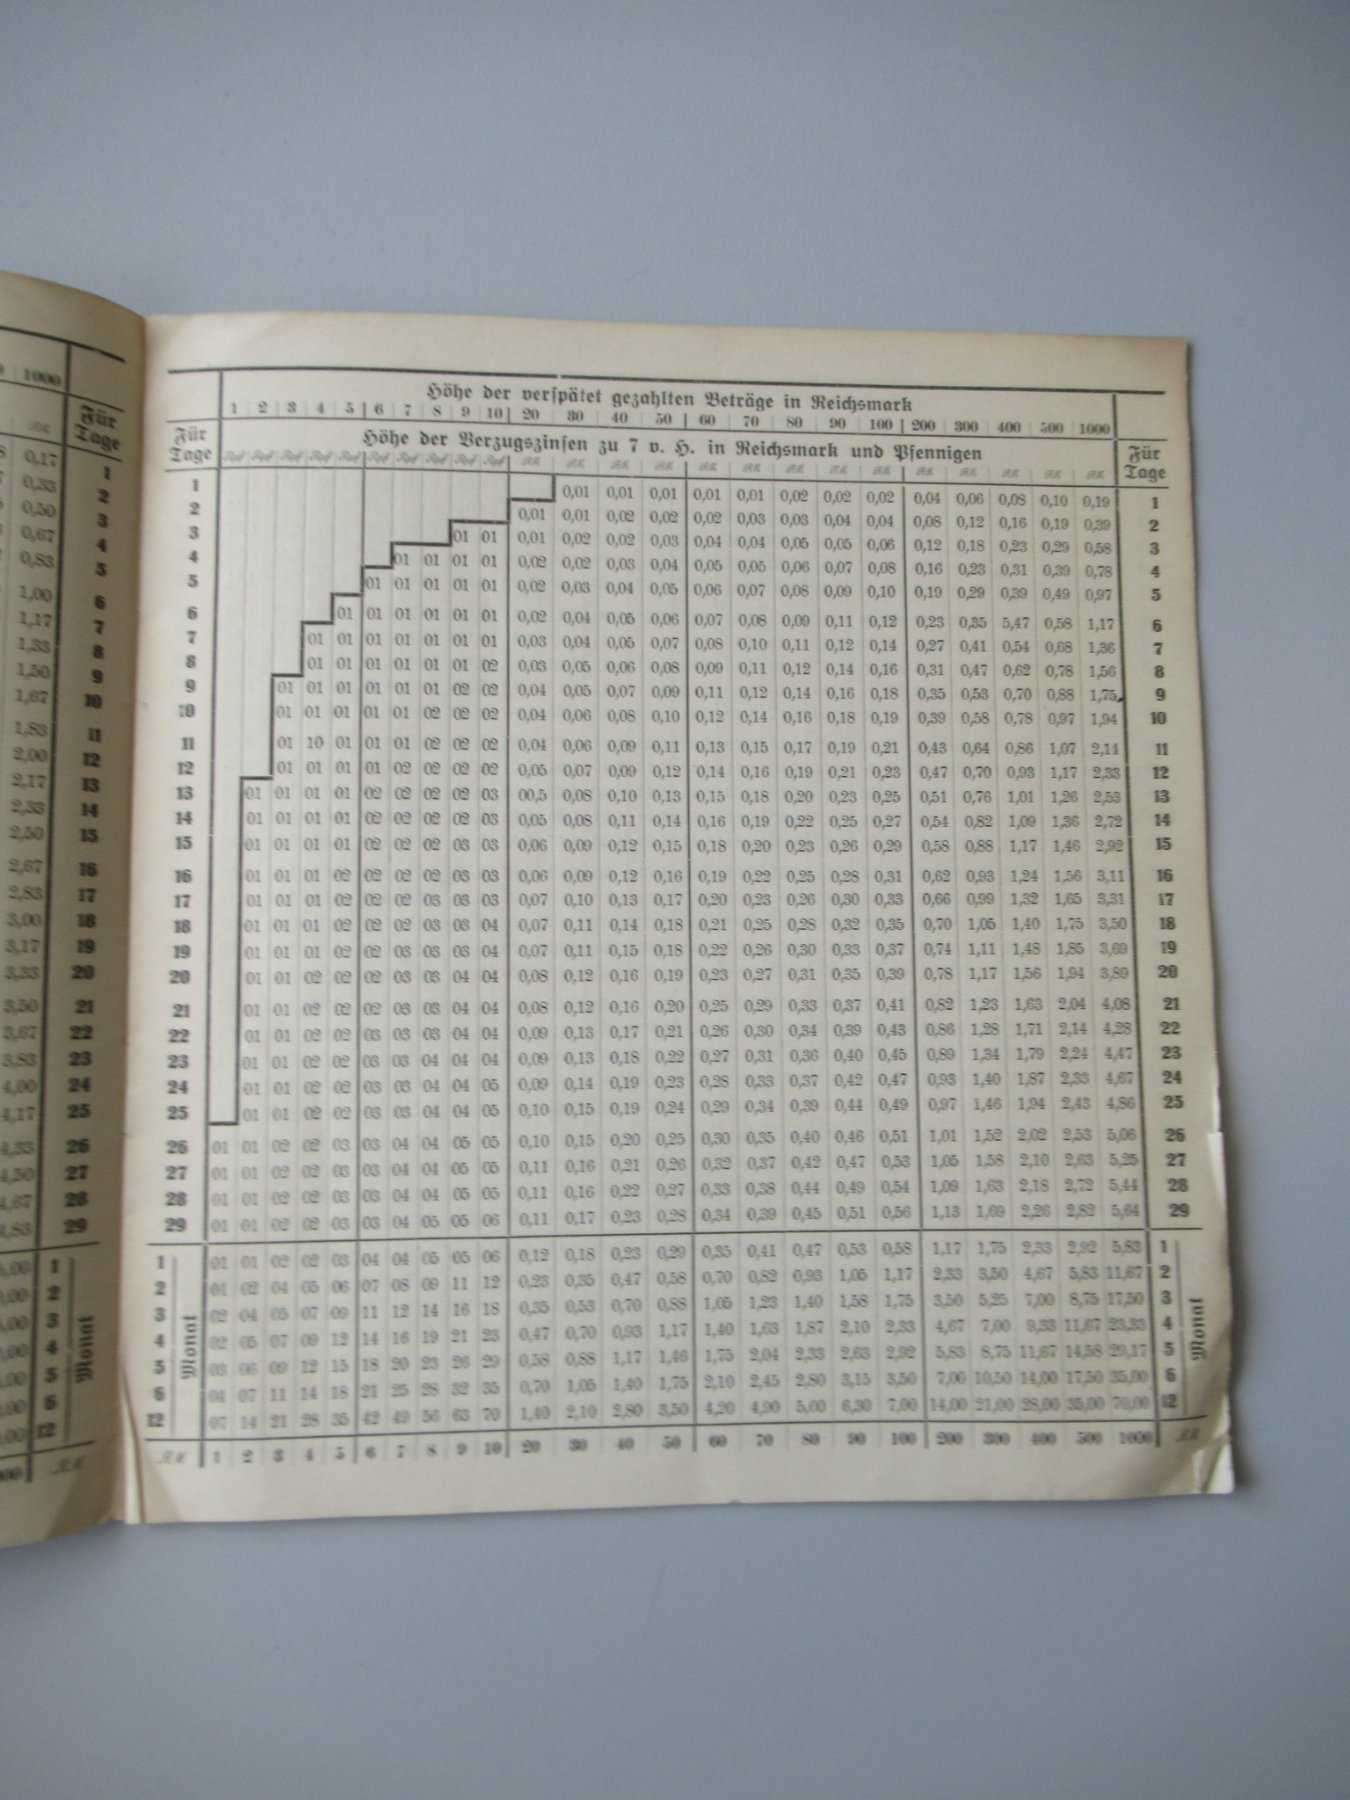 1000
Für
Tage
0,17 1
0,33 2
0,50 3
0,67 4
0,83 5
1,00 6
1,17 7
1,33 8
1,50 9
1,67 10
1,83 11
2,00 12
2,17 13
2,33 14
2,50 15
2,67 16
2,83 17
3,00 18
3,17 19
3,33 20
3,50 21
3,67 22
3,83 23
4,00 24
4,17 25
4,33 26
4,50 27
4,67 28
4,83 29
1
2
3
4
5
6
12
Monat
Höhe der verspätet gezahlten Beträge in Reichsmark
1 2 3 4 5 6 7 8 9 10 20 30 40 50 60 70 80 90 100 200 300 400 500 1000
Für Tage Höhe der Verzugszinsen zu 7 v. H. in Reichsmark und Pfennigen Für Tage
1 0,01 0,01 0,01 0,01 0,01 0,02 0,02 0,02 0,04 0,06 0,08 0,10 0,19 1
2 0,01 0,01 0,02 0,02 0,02 0,03 0,03 0,04 0,04 0,08 0,12 0,16 0,19 0,39 2
3 01 01 0,01 0,02 0,02 0,03 0,04 0,04 0,05 0,05 0,06 0,12 0,18 0,23 0,29 0,58 3
4 01 01 01 01 0,02 0,02 0,03 0,04 0,05 0,05 0,06 0,07 0,08 0,16 0,23 0,31 0,39 0,78 4
5 01 01 01 01 01 0,02 0,03 0,04 0,05 0,06 0,07 0,08 0,09 0,10 0,19 0,29 0,39 0,49 0,97 5
6 01 01 01 01 01 01 0,02 0,04 0,05 0,06 0,07 0,08 0,09 0,11 0,12 0,23 0,35 5,47 0,58 1,17 6
7 01 01 01 01 01 01 01 0,03 0,04 0,05 0,07 0,08 0,10 0,11 0,12 0,14 0,27 0,41 0,54 0,68 1,36 7
8 01 01 01 01 01 01 02 0,03 0,05 0,06 0,08 0,09 0,11 0,12 0,14 0,16 0,31 0,47 0,62 0,78 1,56 8
9 01 01 01 01 01 01 02 02 0,04 0,05 0,07 0,09 0,11 0,12 0,14 0,16 0,18 0,35 0,53 0,70 0,88 1,75 9
10 01 01 01 01 01 02 02 02 0,04 0,06 0,08 0,10 0,12 0,14 0,16 0,18 0,19 0,39 0,58 0,78 0,97 1,94 10
11 01 10 01 01 01 02 02 02 0,04 0,06 0,09 0,11 0,13 0,15 0,17 0,19 0,21 0,43 0,64 0,86 1,07 2,14 11
12 01 01 01 01 02 02 02 02 0,05 0,07 0,09 0,12 0,14 0,16 0,19 0,21 0,23 0,47 0,70 0,93 1,17 2,33 12
13 01 01 01 01 02 02 02 02 03 00,5 0,08 0,10 0,13 0,15 0,18 0,20 0,23 0,25 0,51 0,76 1,01 1,26 2,53 13
14 01 01 01 01 02 02 02 02 03 0,05 0,08 0,11 0,14 0,16 0,19 0,22 0,25 0,27 0,54 0,82 1,09 1,36 2,72 14
15 01 01 01 01 02 02 02 03 03 0,06 0,09 0,12 0,15 0,18 0,20 0,23 0,26 0,29 0,58 0,88 1,17 1,46 2,92 15
16 01 01 01 02 02 02 02 03 03 0,06 0,09 0,12 0,16 0,19 0,22 0,25 0,28 0,31 0,62 0,93 1,24 1,56 3,11 16
17 01 01 01 02 02 02 03 03 03 0,07 0,10 0,13 0,17 0,20 0,23 0,26 0,30 0,33 0,66 0,99 1,32 1,65 3,31 17
18 01 01 01 02 02 02 03 03 04 0,07 0,11 0,14 0,18 0,21 0,25 0,28 0,32 0,35 0,70 1,05 1,40 1,75 3,50 18
19 01 01 01 02 02 03 03 04 04 0,07 0,11 0,15 0,18 0,22 0,26 0,30 0,33 0,37 0,74 1,11 1,48 1,85 3,69 19
20 01 01 02 02 02 03 03 04 04 0,08 0,12 0,16 0,19 0,23 0,27 0,31 0,35 0,39 0,78 1,17 1,56 1,94 3,89 20
21 01 01 02 02 02 03 03 04 04 0,08 0,12 0,16 0,20 0,25 0,29 0,33 0,37 0,41 0,82 1,23 1,63 2,04 4,08 21
22 01 01 02 02 03 03 03 04 04 0,09 0,13 0,17 0,21 0,26 0,30 0,34 0,39 0,43 0,86 1,28 1,71 2,14 4,28 22
23 01 01 02 02 03 03 04 04 04 0,09 0,13 0,18 0,22 0,27 0,31 0,36 0,40 0,45 0,89 1,34 1,79 2,24 4,47 23
24 01 01 02 02 03 03 04 04 05 0,09 0,14 0,19 0,23 0,28 0,33 0,37 0,42 0,47 0,93 1,40 1,87 2,33 4,67 24
25 01 01 02 02 03 03 04 04 05 0,10 0,15 0,19 0,24 0,29 0,34 0,39 0,44 0,49 0,97 1,46 1,94 2,43 4,86 25
26 01 01 02 02 03 03 04 04 05 05 0,10 0,15 0,20 0,25 0,30 0,35 0,40 0,46 0,51 1,01 1,52 2,02 2,53 5,06 26
27 01 01 02 02 03 03 04 04 05 05 0,11 0,16 0,21 0,26 0,32 0,37 0,42 0,47 0,53 1,05 1,58 2,10 2,63 5,25 27
28 01 01 02 02 03 03 04 04 05 05 0,11 0,16 0,22 0,27 0,33 0,38 0,44 0,49 0,54 1,09 1,63 2,18 2,72 5,44 28
29 01 01 02 02 03 03 04 05 05 06 0,11 0,17 0,23 0,28 0,34 0,39 0,45 0,51 0,56 1,13 1,69 2,26 2,82 5,64 29
1 01 01 02 02 03 04 04 05 05 06 0,12 0,18 0,23 0,29 0,35 0,41 0,47 0,53 0,58 1,17 1,75 2,33 2,92 5,83 1
2 01 02 04 05 06 07 08 09 11 12 0,23 0,35 0,47 0,58 0,70 0,82 0,93 1,05 1,17 2,33 3,50 4,67 5,83 11,67 2
3 02 04 05 07 09 11 12 14 16 18 0,35 0,53 0,70 0,88 1,05 1,23 1,40 1,58 1,75 3,50 5,25 7,00 8,75 17,50 3
4 02 05 07 09 12 14 16 19 21 23 0,47 0,70 0,93 1,17 1,40 1,63 1,87 2,10 2,33 4,67 7,00 9,33 11,67 23,33 4
5 03 06 09 12 15 18 20 23 26 29 0,58 0,88 1,17 1,46 1,75 2,04 2,33 2,63 2,92 5,83 8,75 11,67 14,58 29,17 5
6 04 07 11 14 18 21 25 28 32 35 0,70 1,05 1,40 1,75 2,10 2,45 2,80 3,15 3,50 7,00 10,50 14,00 17,50 35,00 6
12 07 14 21 28 35 42 49 56 63 70 1,40 2,10 2,80 3,50 4,20 4,90 5,60 6,30 7,00 14,00 21,00 28,00 35,00 70,00 12
Monat Monat
RM 1 2 3 4 5 6 7 8 9 10 20 30 40 50 60 70 80 90 100 200 300 400 500 1000 RM